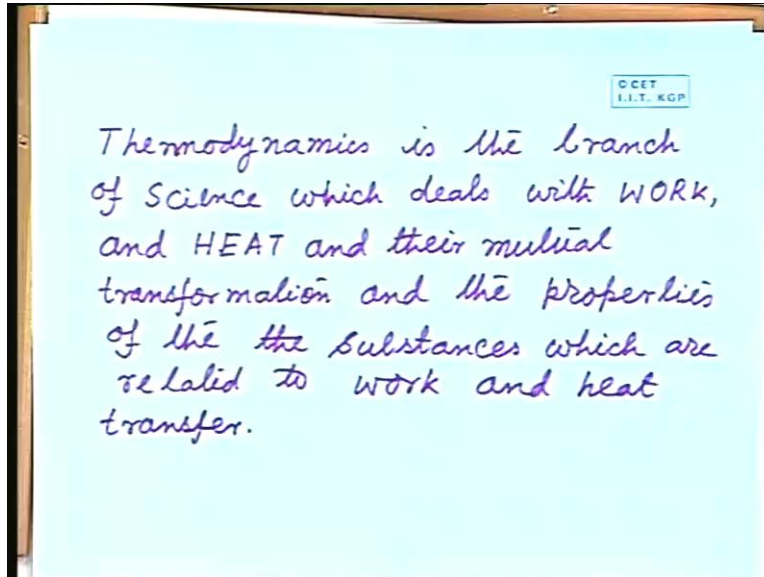 © CET
I.I.T. KGP
Thermodynamics is the branch
of Science which deals with WORK,
and HEAT and their mutual
transformation and the properties
of the the substances which are
related to work and heat
transfer.